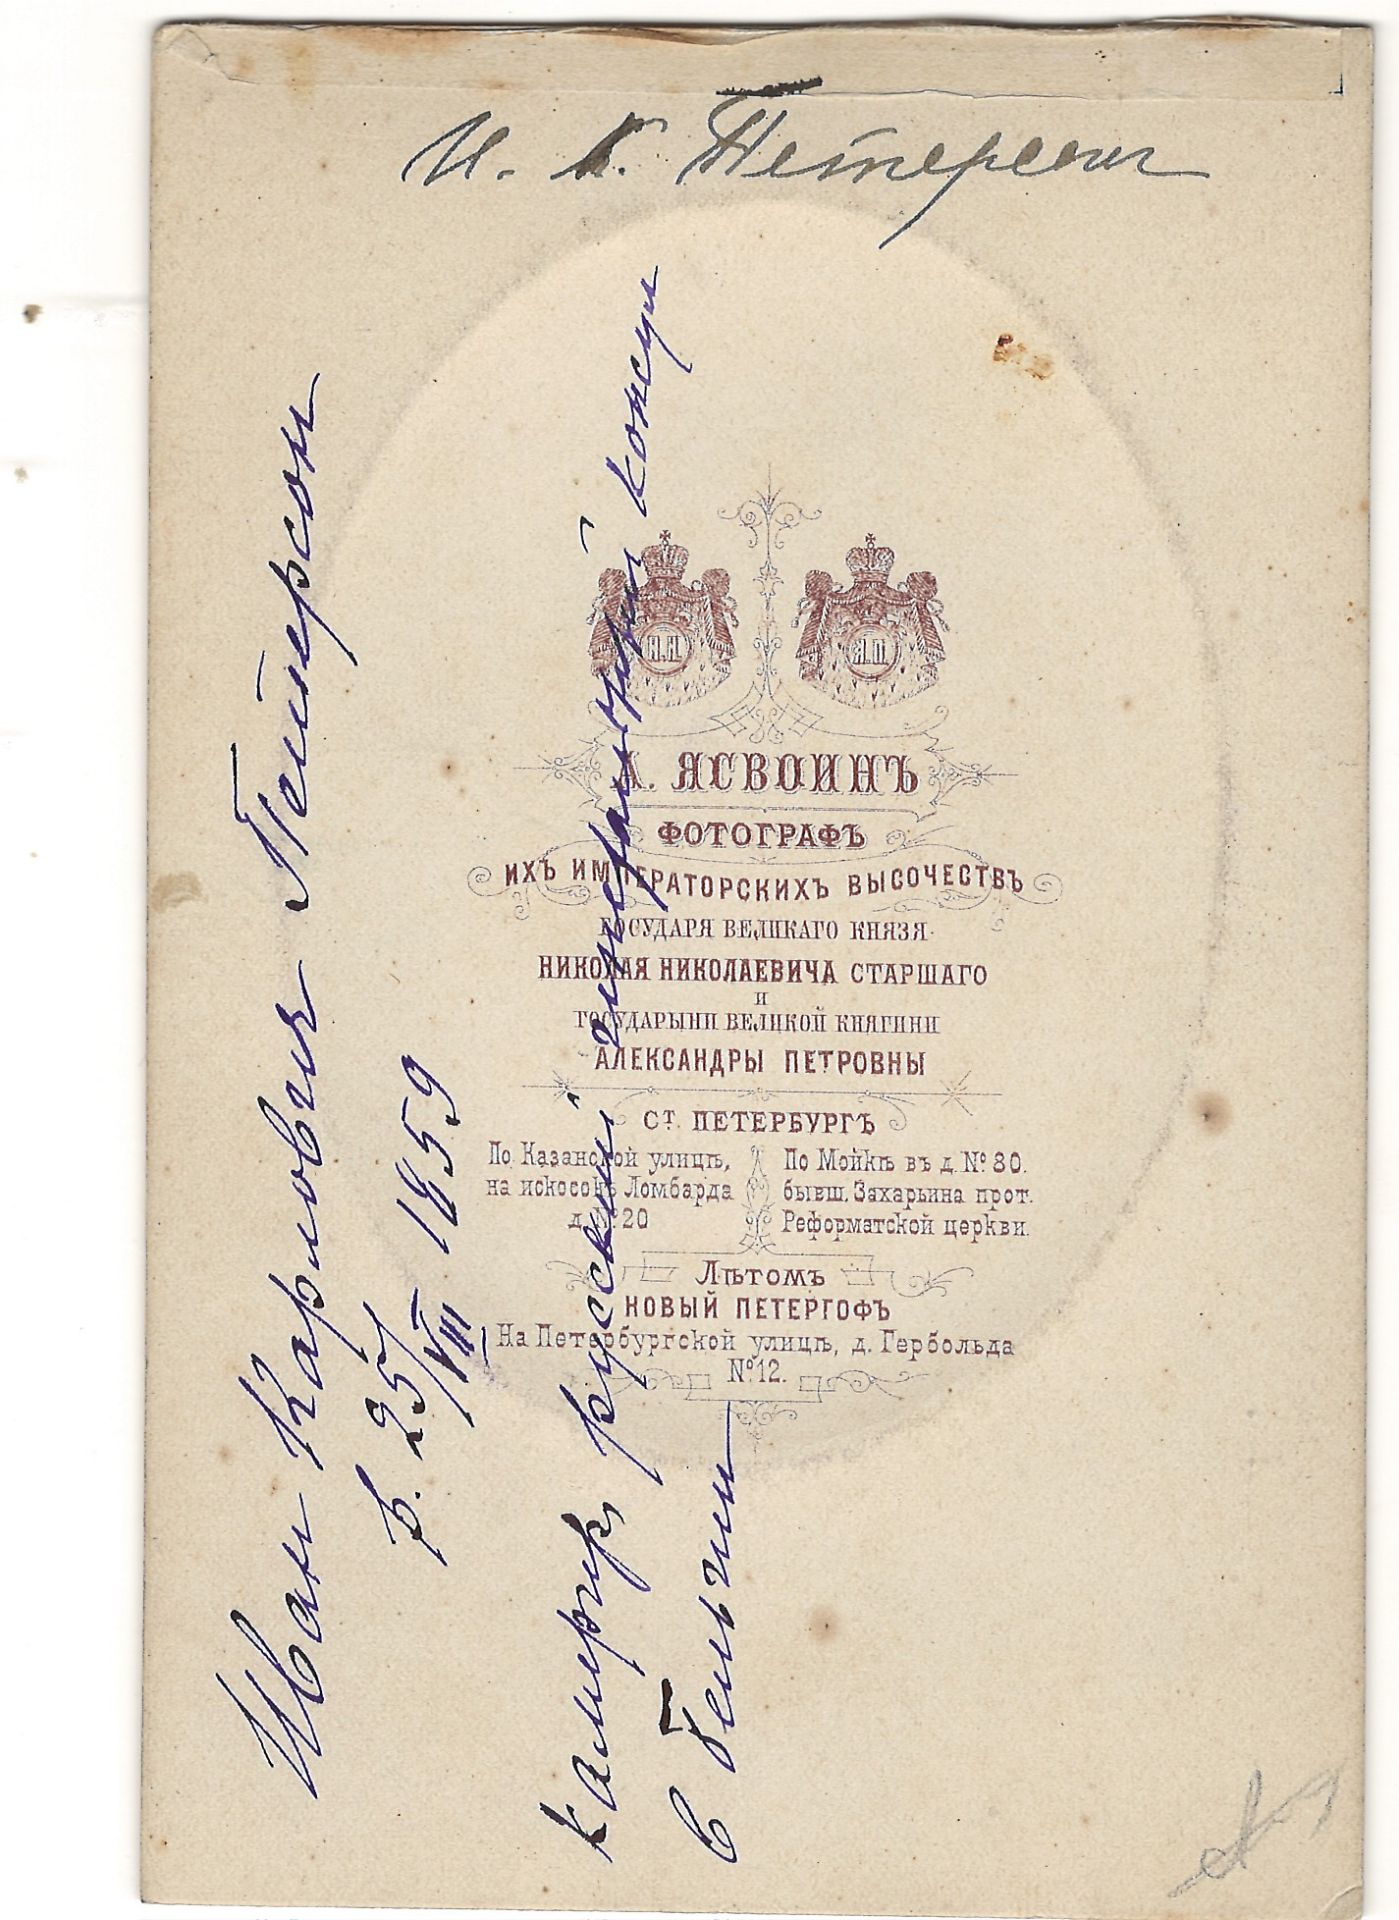 И. К. Петерсон
Иван Карлович Петерсон
р. 25/VIII 1859
камергер, русский императорский консул
в Бельгии
Н.Н. А.П.
Л. ЯСВОИНЪ
ФОТОГРАФЪ
ИХЪ ИМПЕРАТОРСКИХЪ ВЫСОЧЕСТВЪ
ГОСУДАРЯ ВЕЛИКАГО КНЯЗЯ
НИКОЛАЯ НИКОЛАЕВИЧА СТАРШАГО
И
ГОСУДАРЫНИ ВЕЛИКОЙ КНЯГИНИ
АЛЕКСАНДРЫ ПЕТРОВНЫ
СТ. ПЕТЕРБУРГЪ
По Казанской улицѣ,
на искосокъ Ломбарда
д. № 20
По Мойкѣ въ д. № 30.
бывш. Захарьина прот.
Реформатской церкви.
Лѣтомъ
НОВЫЙ ПЕТЕРГОФЪ
На Петербургской улицѣ, д. Гербольда
№ 12.